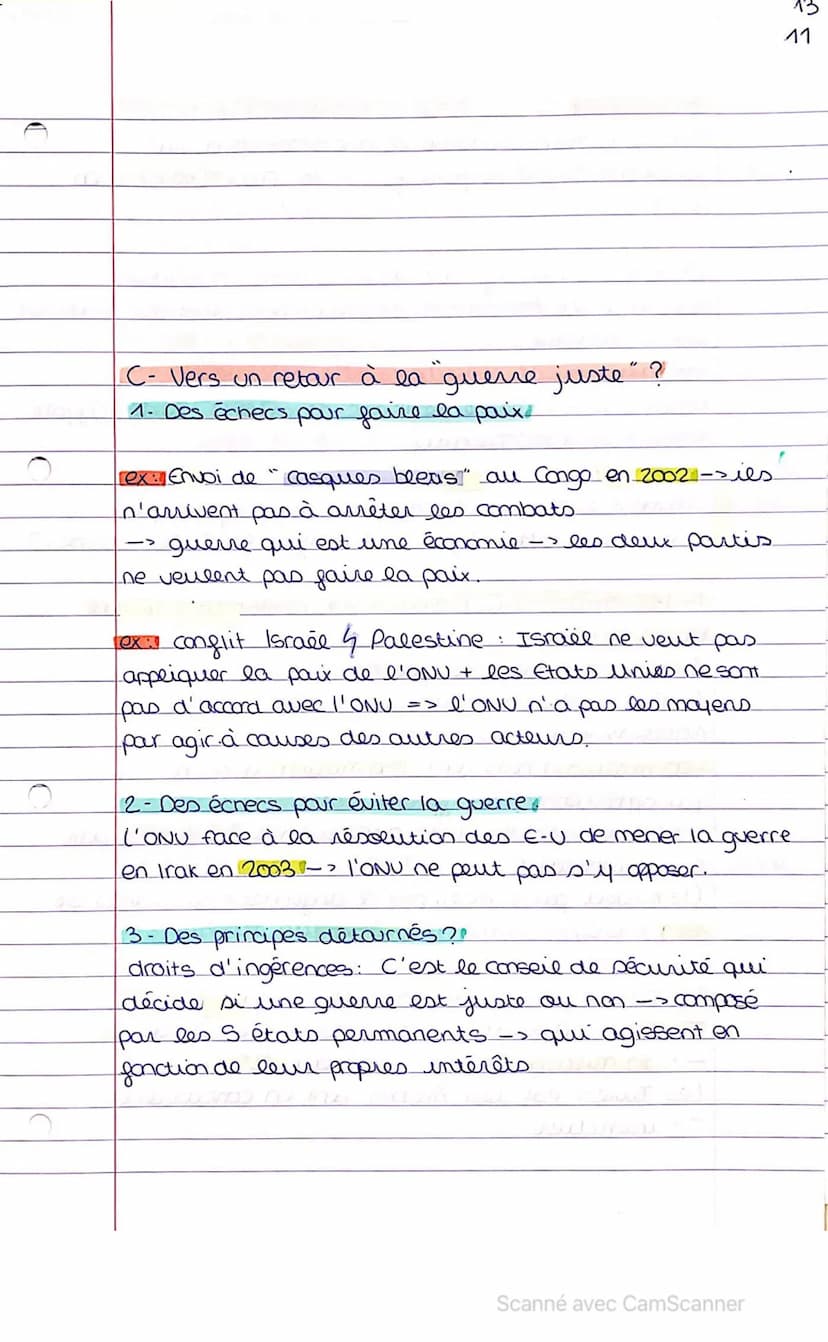 13
11
C- Vers un retour à la "guerre juste" ?
1- Des échecs pour faire la paix.
ex: Envoi de "casques bleus" au Congo en 2002 -> ils
n'arrivent pas à arrêter les combats
-> guerre qui est une économie -> les deux partis
ne veulent pas faire la paix.
ex: conflit Israël ϟ Palestine : Israël ne veut pas
appliquer la paix de l'ONU + les Etats Unies ne sont
pas d'accord avec l'ONU => l'ONU n'a pas les moyens
par agir à causes des autres acteurs.
2- Des échecs pour éviter la guerre.
L'ONU face à la résolution des E-U de mener la guerre
en Irak en 2003 -> l'ONU ne peut pas s'y opposer.
3- Des principes détournés ?
droits d'ingérences : C'est le conseil de sécurité qui
décide si une guerre est juste ou non -> composé
par les 5 états permanents -> qui agissent en
fonction de leur propres intérêts
Scanné avec CamScanner